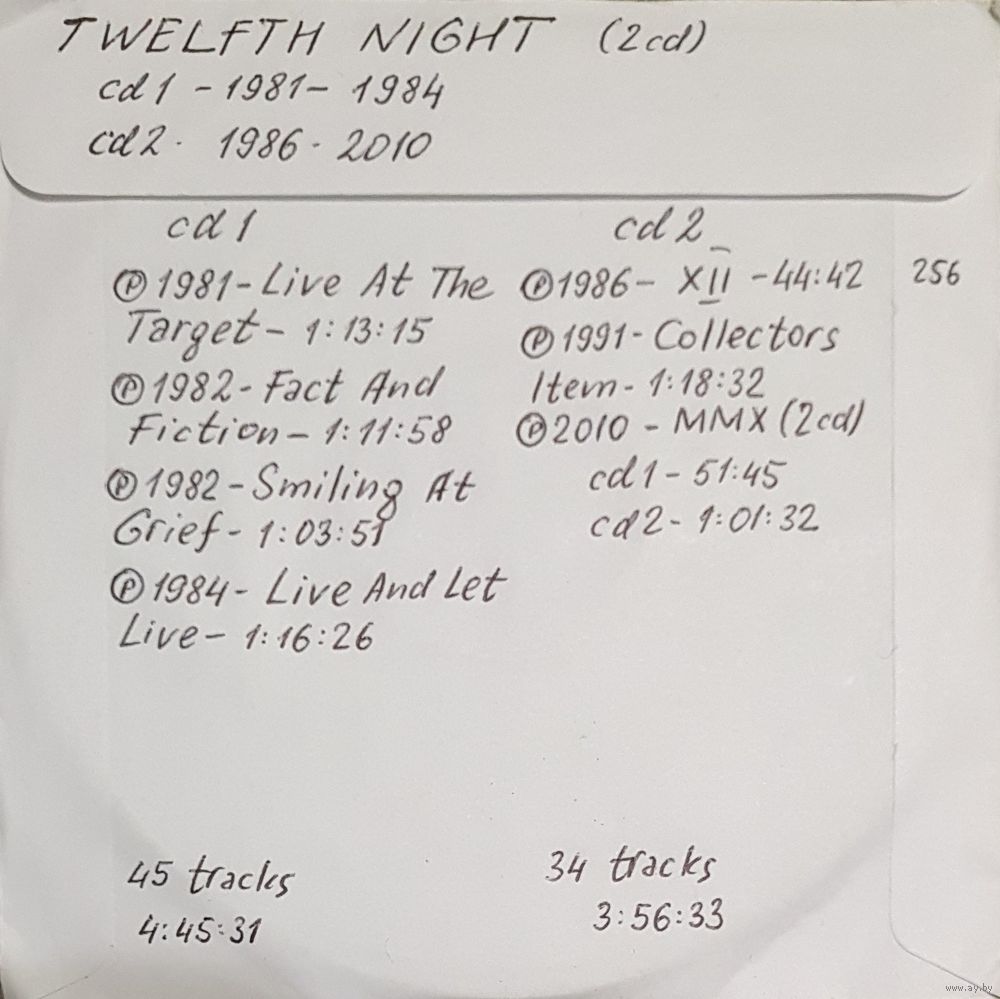 TWELFTH NIGHT (2cd)
cd1 - 1981 - 1984
cd2 · 1986 · 2010
cd 1
Ⓟ 1981 - Live At The
Target - 1:13:15
Ⓟ 1982 - Fact And
Fiction - 1:11:58
Ⓟ 1982 - Smiling At
Grief - 1:03:51
Ⓟ 1984 - Live And Let
Live - 1:16:26
45 tracks
4:45:31
cd 2
Ⓟ 1986 - XII - 44:42
Ⓟ 1991 - Collectors
Item - 1:18:32
Ⓟ 2010 - MMX (2cd)
cd1 - 51:45
cd2 - 1:01:32
34 tracks
3:56:33
256
www.ay.by